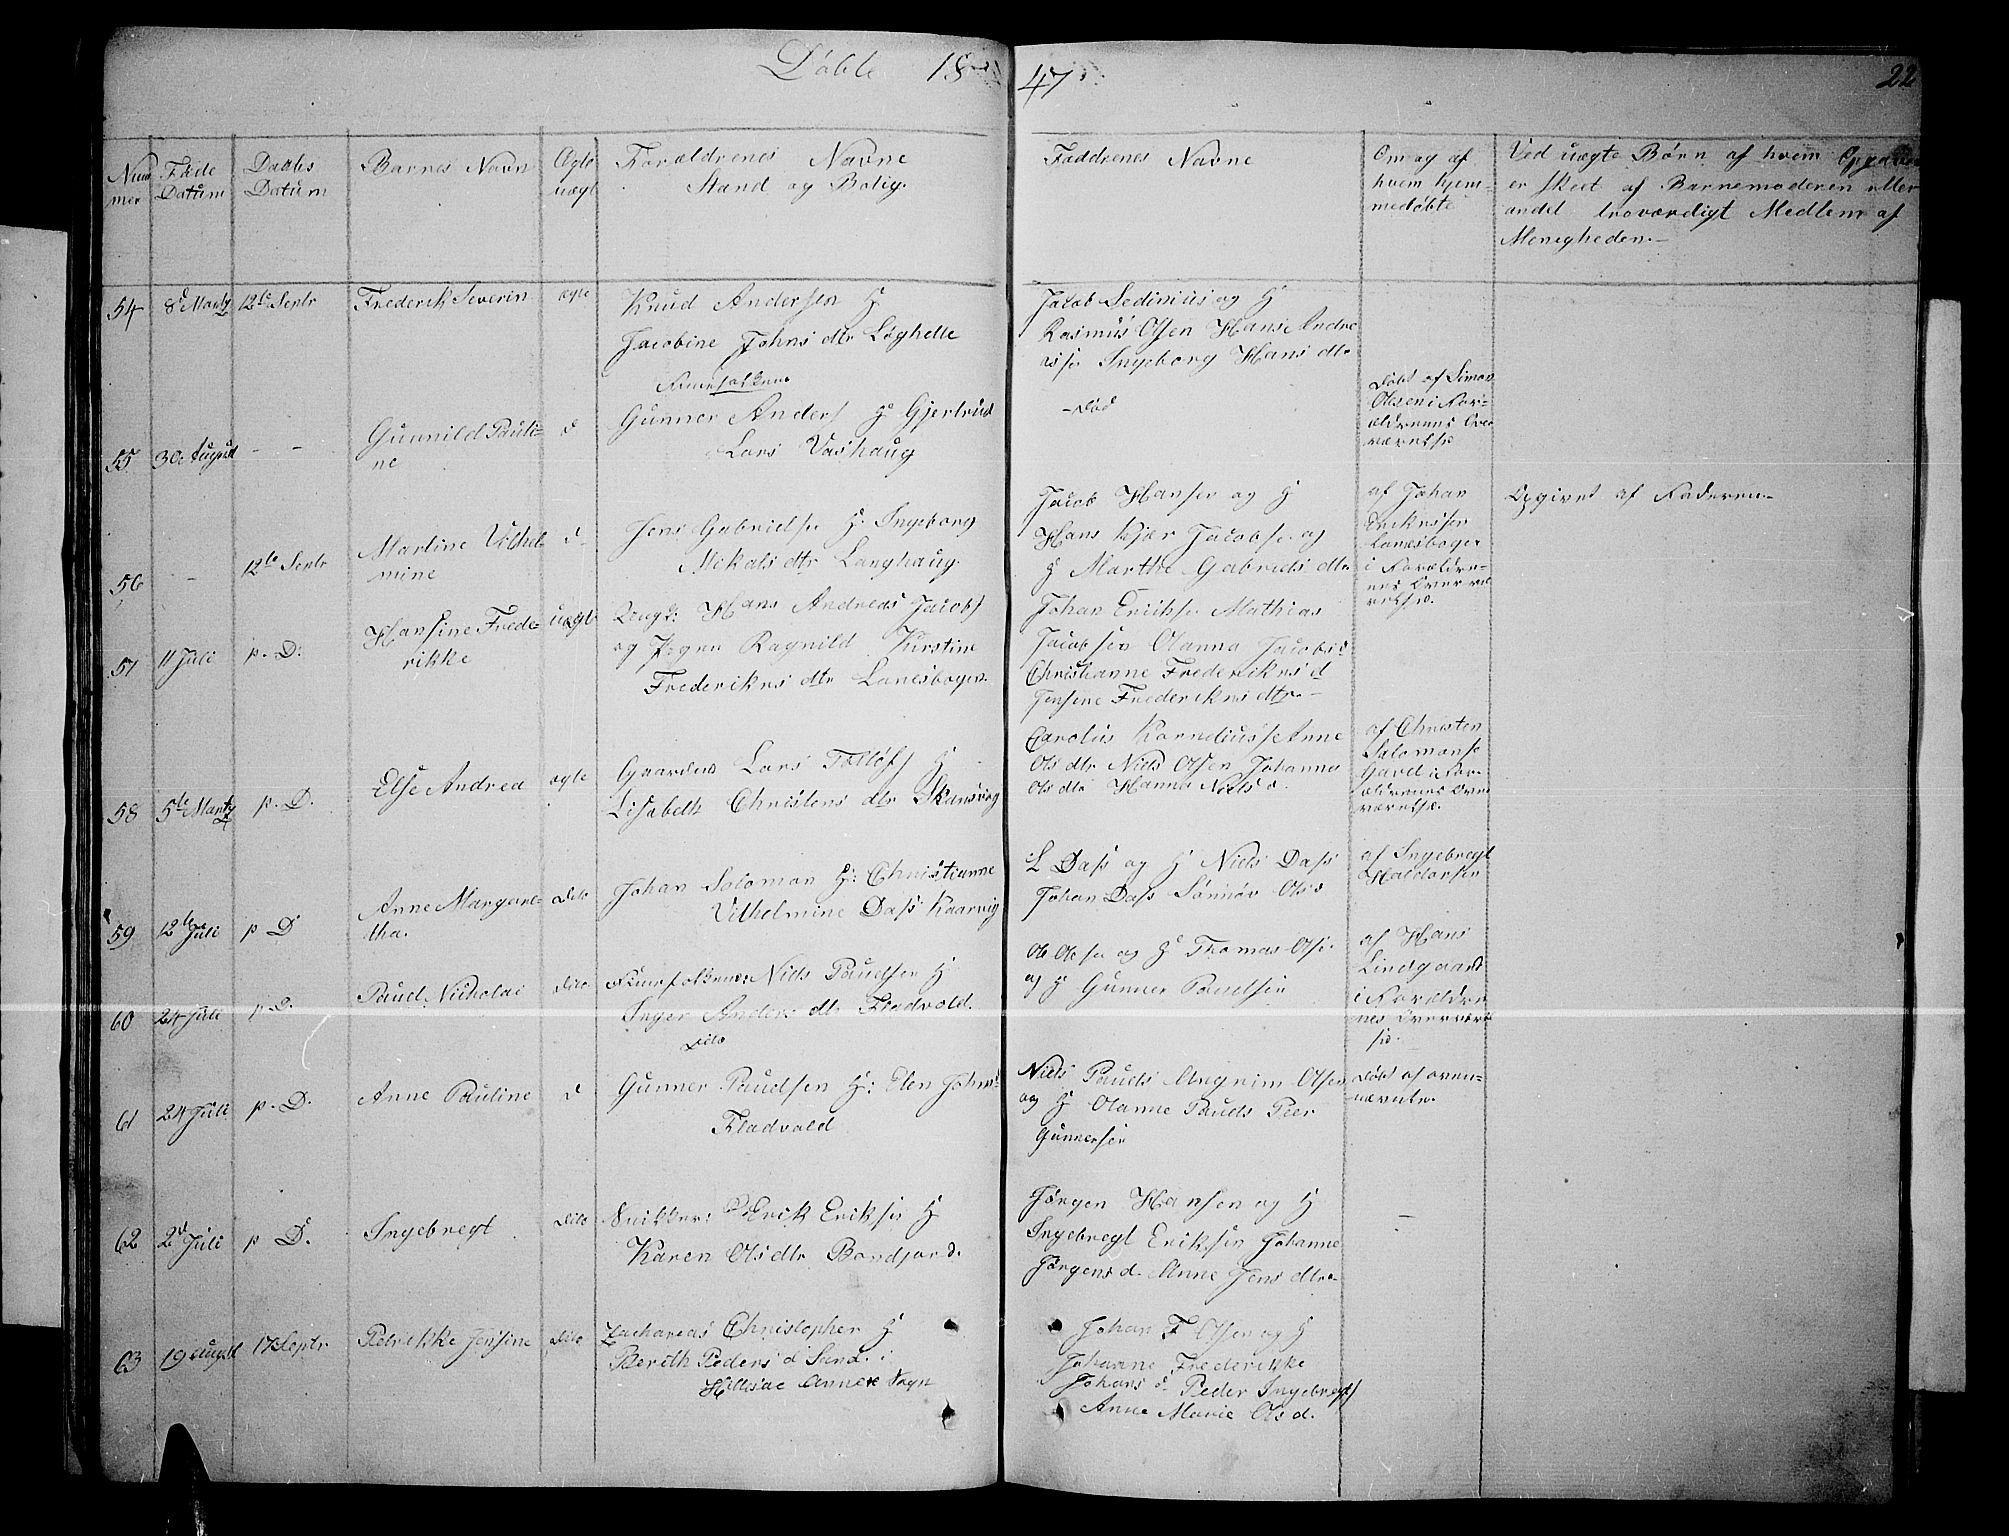 Døbte 1847.
22
Num
mer
Føde
Datum
Daabs
Datum
Barnes Navn
Ægte
uægt
Forældrenes Navne
Stand og Bolig.
Faddrenes Navne
Om og af
hvem hjem-
medøbte
Ved uægte Børn af hvem Opgaven
er skeet af Barnemoderen eller
andet troværdigt Medlem af
Menigheden.
54 8de Marty 12te Septr Frederik Severin ægte Knud Andersen H
Jacobine Johns dtr Løghelle
Jacob Sedinius og H
Rasmus Olsen Hans Andre
Ingeborg Hans dtr
55 30 August - - Gunnild Pauli-
ne
d
Gunner Anders H Gjertrud
Lars Vashaug
- Død
Døbt af Simon
Olsen i For-
ældrenes Over
værelse
56 - 12te Septr Martine Vilhel-
mine
d
Jens Gabrielse H: Ingeborg
Mikals dtr Langhaug
Jacob Hansen og H
Hans Kjær Jacobse og
H Marthe Gabriels dtr
af Johan
Erikssen
Lanesboger
i Forældre-
nes Overvæ
relse.
Opgivet af Faderen.
57 11 Juli p. D. Hansine Frede-
rikke
uægte
Ungk: Hans Andreas Jacobs
og Pigen Ragnild Kirstine
Frederiks dtr Lanesbogen.
Johan Erikse Mathias
Jacobsen Olanna Jacobs
Christianne Frederiks d
Jensine Frederiks dtr.
58 5te Marty p. D. Else Andrea ægte
Gaardm Lars Tollefs H
Lisabeth Christens dtr Skansvig
Carolus Korneliusse Anne
Ols dtr Niels Olsen Johanna
Ols dtr Hanna Niels d.
af Christen
Salomonse
Hard i For-
ældrenes Over
værelse.
59 12te Juli p D Anne Margare-
tha.
Dito
Johan Salomon H: Christianne
Vilhelmine Dass Kaarvig
L Dass og H Niels Dass
Johan Dass Sønnøv Ols d
af Ingebregt
Haldorsen
60 24 Juli p. D. Paul Nicholai Dito
Niels Paulsen H
Inger Anders dtr Fladvold.
Ole Olsen og H Thomas Olse
og H Gunner Paulsen
af Hans
Lindgaard
i Forældre
nes Overværel
se.
61 24 Juli p. D. Anne Pauline d
Dito
Gunner Paulsen H: Elen Johns
Fladvold
Niels Pauls Angrim Olsen
og H Olanne Pauls Peer
Gunnersen
Døbt af oven-
nævnte.
62 2d Juli p D. Ingebregt Dito
Snikker: Erik Eriksen H
Karen Ols dtr Bondjord.
Jørgen Hansen og H
Ingebregt Eriksen Johanne
Jørgens d. Anne Jens dtr.
-
63 19 August 17 Septr Petrikke Jensine Dito
Zacharias Christopher H
Berith Peders d Sand. i
Annex Sogn
Johan F Olsen og H
Johanne Frederikke
Johans d. Peder Ingebregts
Anne Marie Ols d.